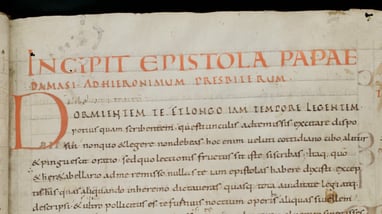 INCIPIT EPISTOLA PAPAE
DAMASI AD HIERONIMUM PRESBITERUM
DORMIENTEM TE ET LONGO IAM TEMPORE LEGENTEM
potius quam scribentem questiunculis ad te missis excitare dispo
sui non quo et legere non debeas hoc enim veluti cottidiano cibo alitur
et pinguescit oratio sed quo lectionis fructus sit iste si scribas itaq; quo
et heri tabellario ad me remisso nullas te iam epistolas habere dixisti excep
tis his quas aliquando in heremo dictaveras quasq; tota aviditate legi atq;
descripsi et ultro pollicitus es te furtivis noctium operis aliquas si velle